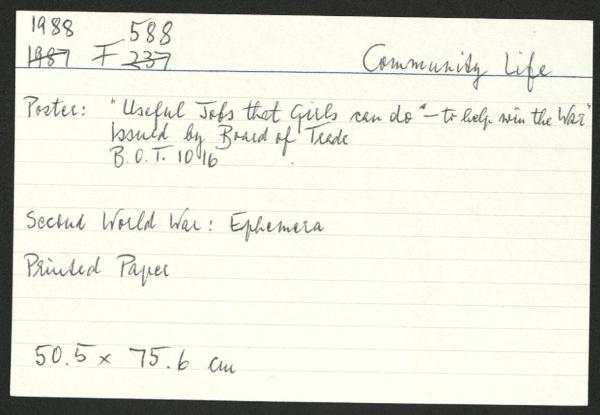 1988 588
1987 F 237
Community Life
Poster: "Useful Jobs that Girls can do" – to help win the War"
Issued by Board of Trade
B.O.T. 1016
Second World War: Ephemera
Printed Paper
50.5 x 75.6 cm